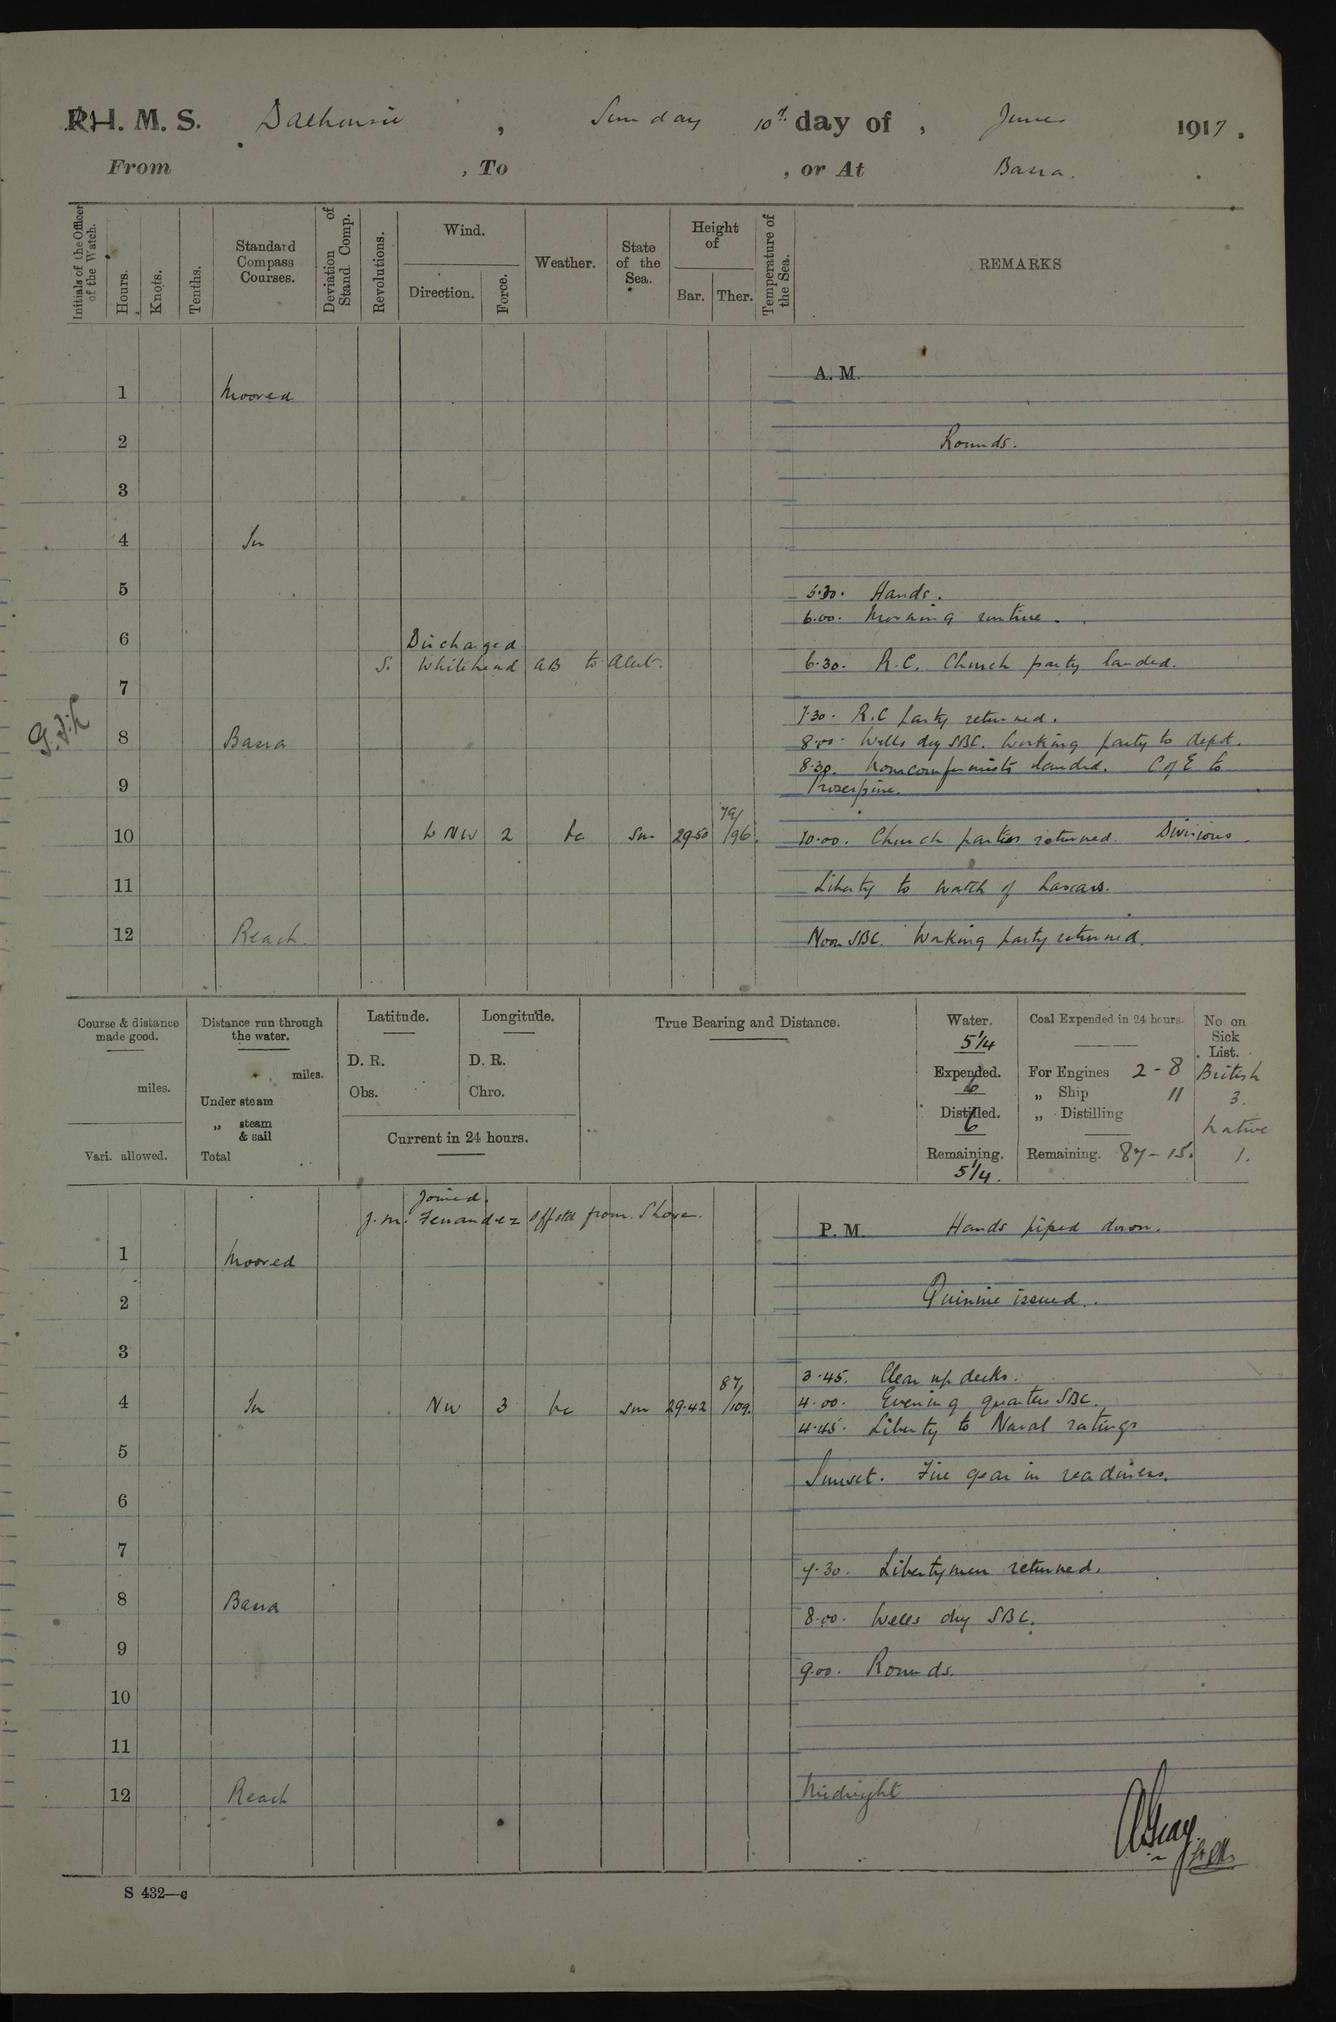 R. H. M. S. Dalhousie, Sunday 10th day of, June 1917.
From , To , or At Basra.
Initials of the Officer of the Watch.
Hours.
Knots.
Tenths.
Standard Compass Courses.
Deviation of Stand Comp.
Revolutions.
Wind.
Direction.
Force.
Weather.
State of the Sea.
Height of
Bar.
Ther.
Temperature of the Sea.
REMARKS
A. M.
1 Moored
2 Rounds.
3
4 In
5 5.30. Hands.
6.00. Morning routine.
6 Discharged
S. Whitehead AB to Alert. 6.30. R.C. Church party landed.
7
7.30. R.C party returned.
8 Basra 8.00. Wells dry SBC. Working party to depot.
8.30. Nonconformists landed. C of E to
9 Proserpine.
79/
10 W NW 2 bc Sm 29.50 /96. 10.00. Church parties returned. Divisions.
11 Liberty to watch of Lascars.
12 Reach Noon SBC. Working party returned.
Course & distance made good.
miles.
Vari. allowed.
Distance run through the water.
miles.
Under steam
„ steam & sail
Total
Latitude.
D. R.
Obs.
Longitude.
D. R.
Chro.
Current in 24 hours.
True Bearing and Distance.
Water.
5¼
Expended.
6
Distilled.
6
Remaining.
5¼.
Coal Expended in 24 hours.
For Engines 2-8
„ Ship 11
„ Distilling
Remaining. 87-15.
No. on Sick List.
British
3.
Native
1.
Joined.
J. M. Fenandez Offstd from Shore.
P. M. Hands piped down.
1 Moored
2 Quinine issued.
3
3.45. Clear up decks.
87/
4 In NW 3 bc sm 29.42 /109. 4.00. Evening quarters SBC.
4.45. Liberty to Naval ratings
5
Sunset. Fire gear in readiness.
6
7
7.30. Libertymen returned.
8 Basra 8.00. Wells dry SBC.
9
9.00. Rounds.
10
11
12 Reach Midnight
AGray
S 432—c